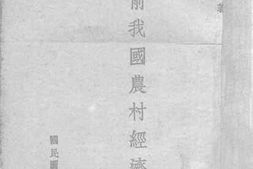 前我國農村經濟
國民圖